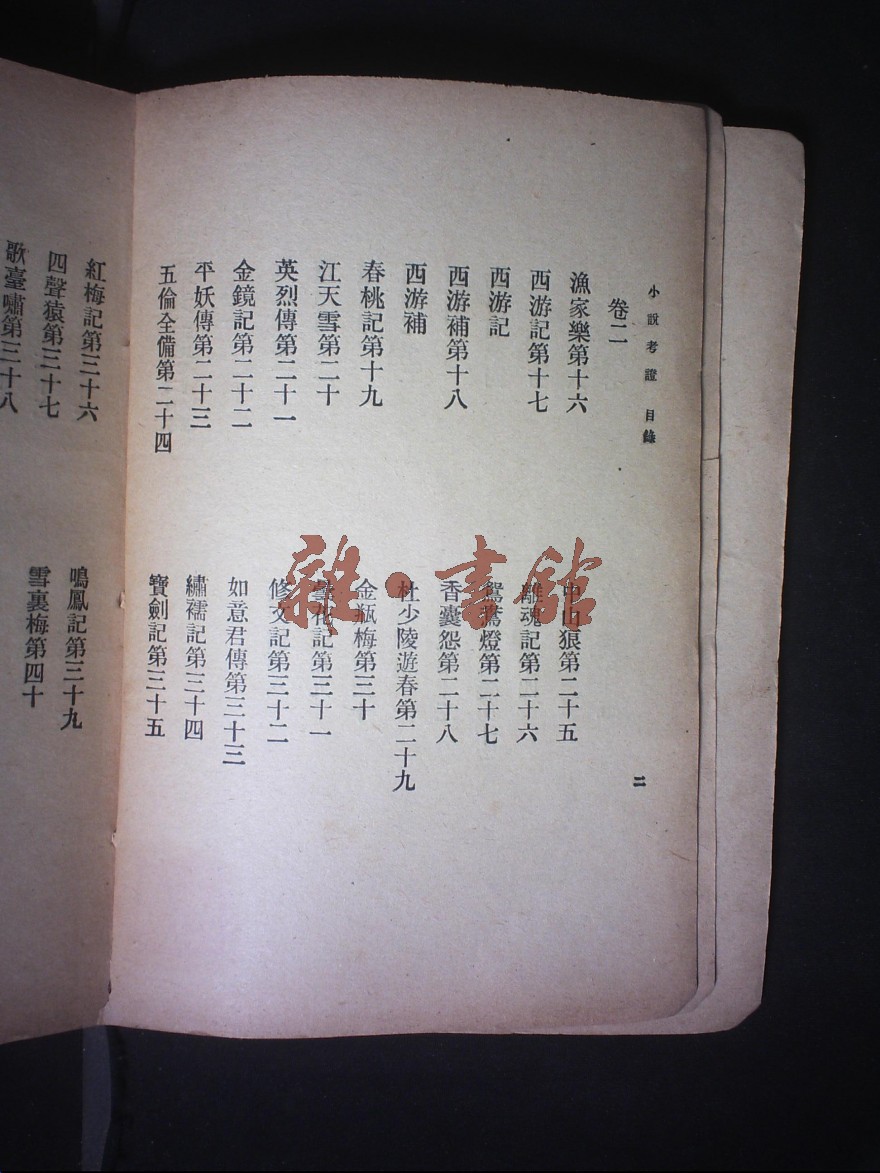 小說考證 目錄
二
卷二
漁家樂第十六
西游記第十七
西游記
西游補第十八
西游補
春桃記第十九
江天雪第二十
英烈傳第二十一
金鏡記第二十二
平妖傳第二十三
五倫全備第二十四
中山狼第二十五
離魂記第二十六
鴛鴦燈第二十七
香囊怨第二十八
杜少陵遊春第二十九
金瓶梅第三十
曇花記第三十一
修文記第三十二
如意君傳第三十三
繡襦記第三十四
寶劍記第三十五
紅梅記第三十六
四聲猿第三十七
歌臺嘯第三十八
鳴鳳記第三十九
雪裏梅第四十
雜·書館